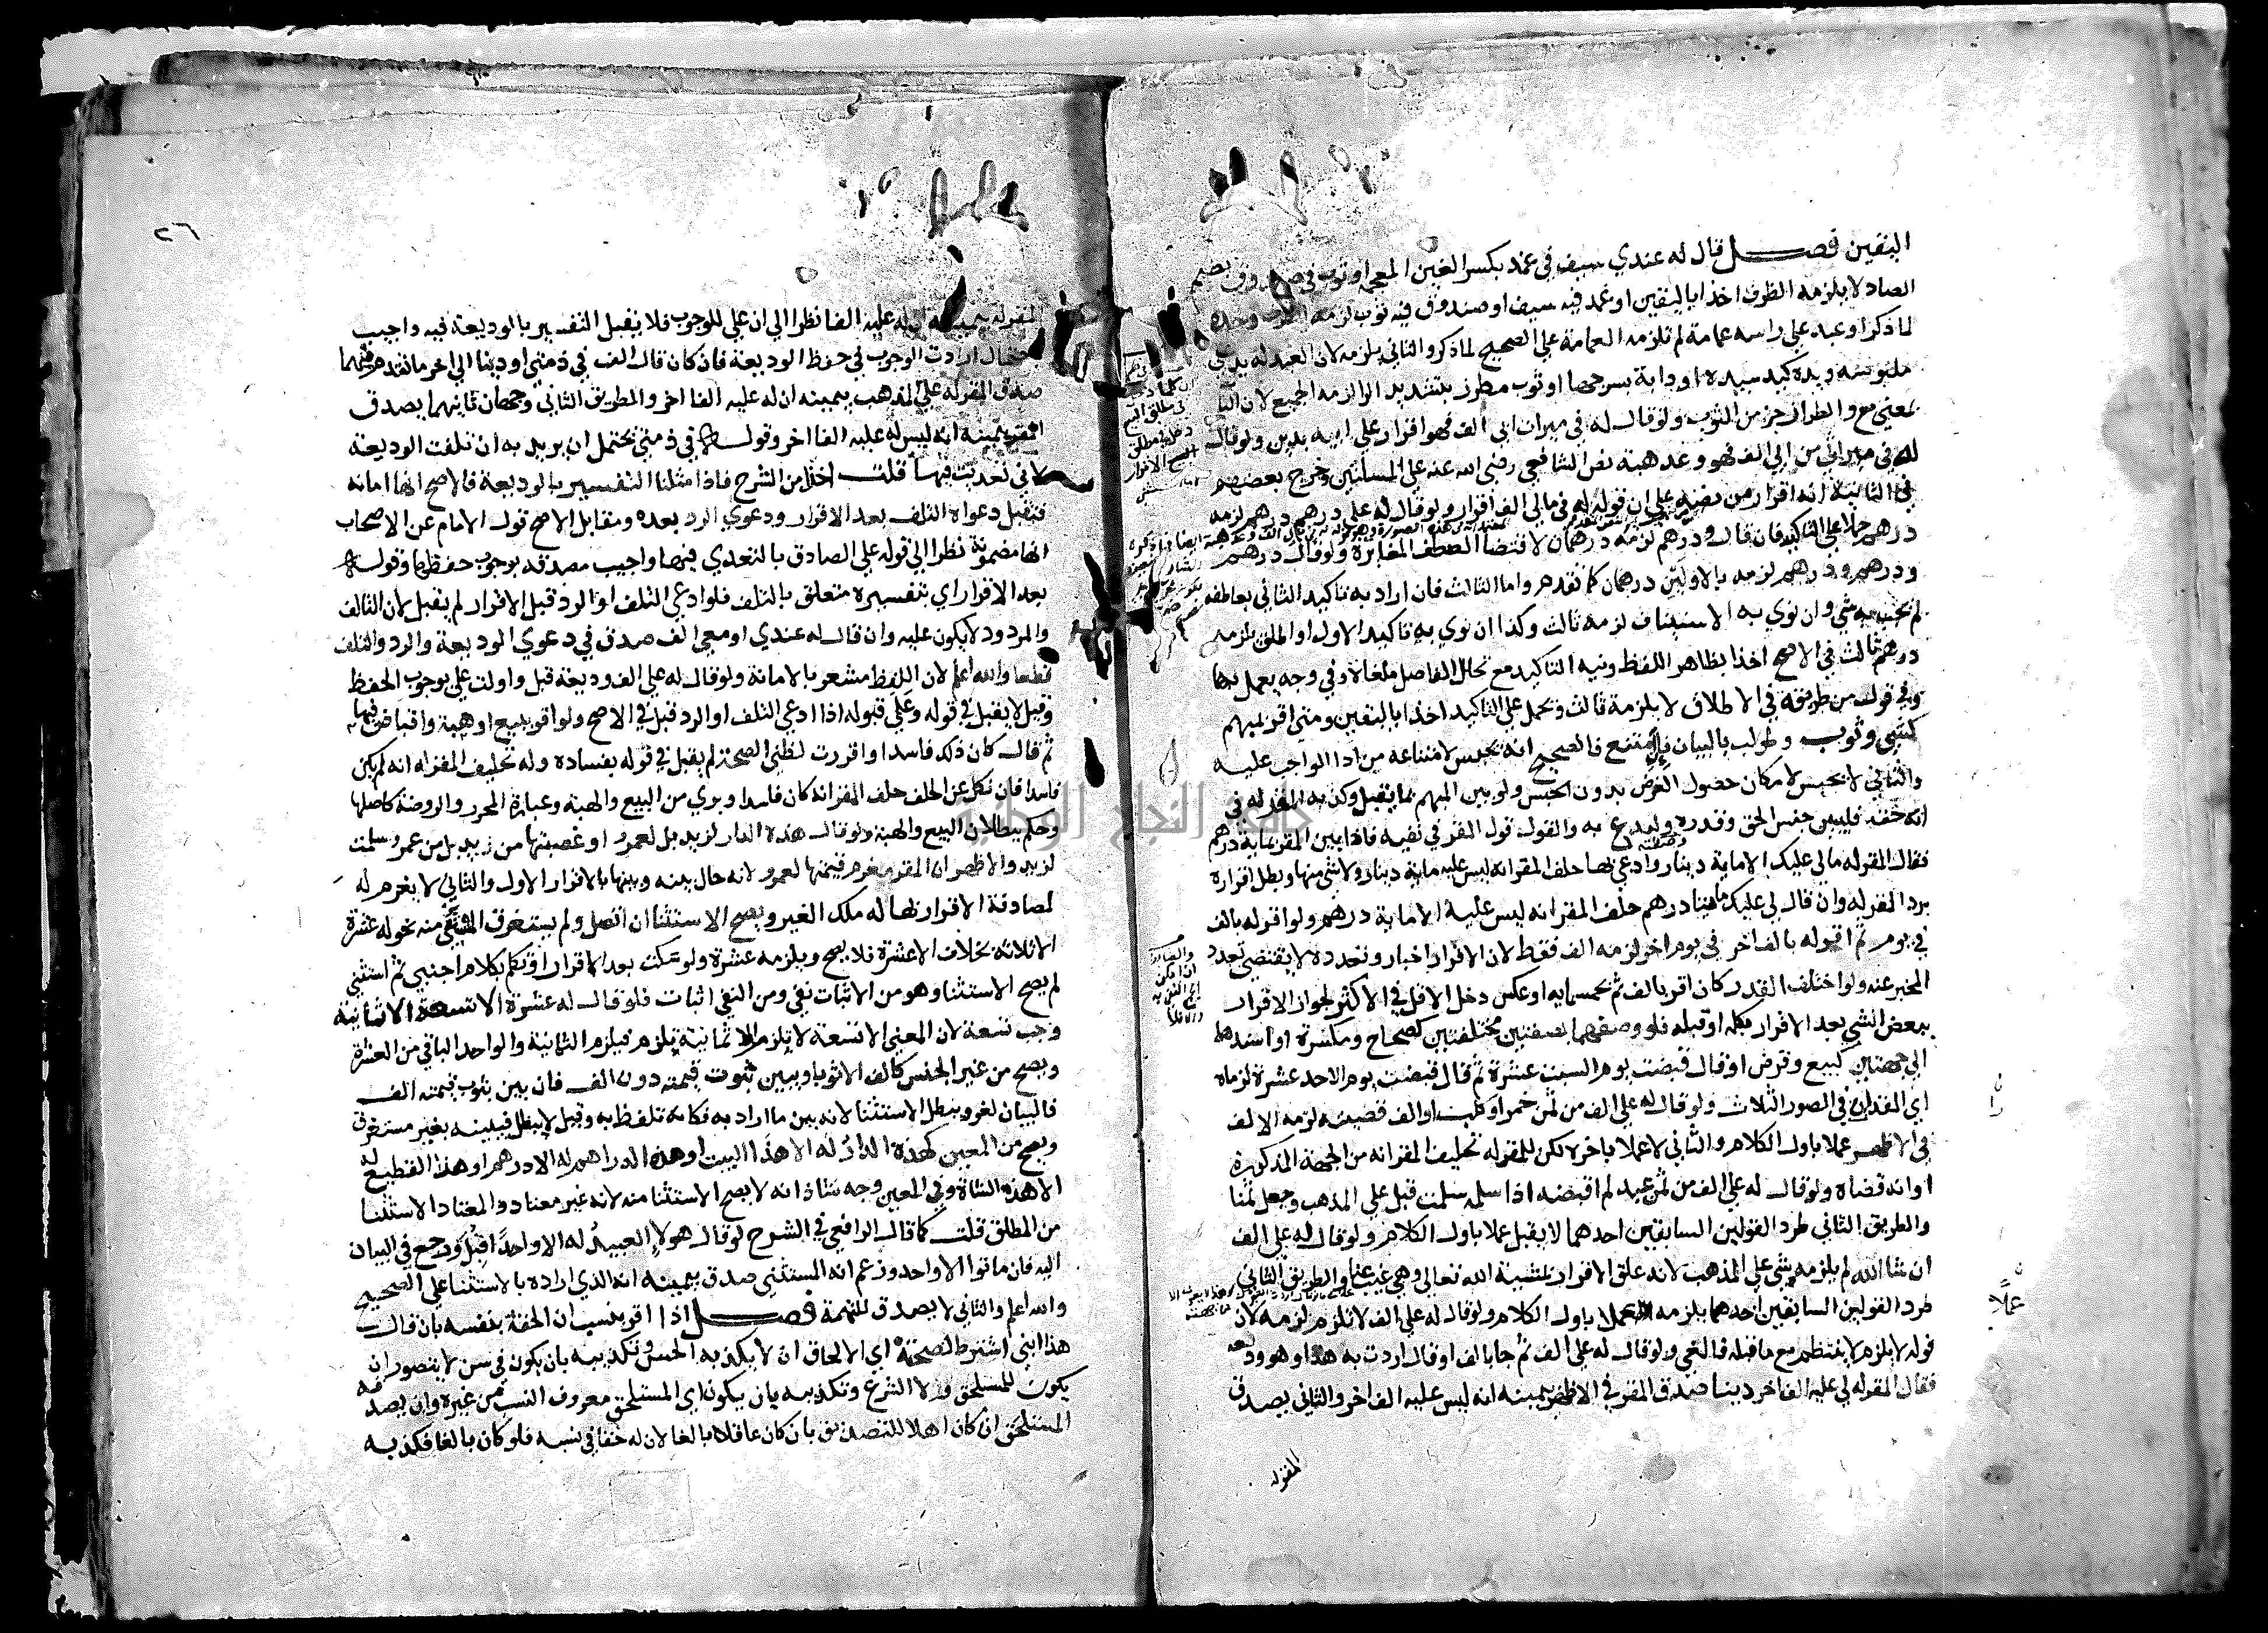 اليقين فصل قال له عندي سيف في غمد بكسر الغين المعجمة او ثوب في صندوق بضم
الصاد لا يلزمه الظرف اخذا باليقين او غمد فيه سيف او صندوق فيه ثوب لزمه الظرف وحده
لما ذكر او عبد علي راسه عمامة لم تلزمه العمامة علي الصحيح لما ذكر والثاني يلزمه لان العبد له يد علي
ملبوسه ويده كيد سيده او دابة بسرجها او ثوب مطرز بتشديد الرا لزمه الجميع لان البا
بمعني مع والطراز جزء من الثوب ولو قال له في ميراث ابي الف فهو اقرار علي ابيه بدين ولو قال
له في ميراثي من ابي الف فهو وعد هبة نص الشافعي رضي الله عنه علي المسالتين وخرج بعضهم
في الثانية انه اقرار من نصه علي ان قوله له في مالي الف اقرار ولو قال له علي درهم درهم لزمه
درهم حملا علي التاكيد فان قال ودرهم لزمه درهمان لاقتضا العطف المغايرة ولو قال درهم
ودرهم ودرهم لزمه بالاولين درهمان كما تقدم واما الثالث فان اراد به تاكيد الثاني بعاطفه
لم يجب به شي وان نوي به الاستيناف لزمه ثالث وكذا ان نوي به تاكيد الاول او اطلق يلزمه
درهم ثالث في الاصح اخذا بظاهر اللفظ ونية التاكيد مع تخلل الفاصل ملغاة وفي وجه يعمل بها
وفي قول من طريقة في الاطلاق لا يلزمه ثالث ويحمل علي التاكيد اخذا باليقين ومتي اقر بمبهم
كشي وثوب وطولب بالبيان فامتنع فالصحيح انه يحبس لامتناعه من ادا الواجب عليه
والثاني لا يحبس لامكان حصول الغرض بدون الحبس ولو بين المبهم بما يقبل وكذبه المقر له في
انه حقه فليبين جنس الحق وقدره وصفته وليدع به والقول قول المقر في نفيه فاذا بين المقر بماية درهم
فقال المقر له مالي عليك الا ماية دينار وادعي بها حلف المقر انه ليس عليه ماية دينار ولا شي منها وبطل اقراره
برد المقر له وان قال لي عليك مايتا درهم حلف المقر انه ليس عليه الا ماية درهم ولو اقر له بالف
في يوم ثم اقر له بالف اخر في يوم اخر لزمه الف فقط لان الاقرار اخبار وتعدده لا يقتضي تعدد
المخبر عنه ولو اختلف القدر كان اقر بالف ثم بخمسمايه او عكس دخل الاقل في الاكثر لجواز الاقرار
ببعض الشي بعد الاقرار بكله او قبله فلو وصفهما بصفتين مختلفتين كصحاح ومكسرة او اسندهما
الي جهتين كبيع وقرض او قال قبضت يوم السبت عشرة ثم قال قبضت يوم الاحد عشرة لزماه
اي القدران في الصور الثلاث ولو قال له علي الف من ثمن خمر او كلب او الف قضيته لزمه الالف
في الاظهر عملا باول الكلام والثاني لا عملا باخره لكن للمقر له تحليف المقر انه من الجهة المذكورة
او انه قضاه ولو قال له علي الف من ثمن عبد لم اقبضه اذا سلمه سلمت قبل علي المذهب وجعل ثمنا
والطريق الثاني طرد القولين السابقين احدهما لا يقبل عملا باول الكلام ولو قال له علي الف
ان شا الله لم يلزمه شي علي المذهب لانه علق الاقرار بمشيية الله تعالي وهي غيب عنا والطريق الثاني
طرد القولين السابقين احدهما يلزمه عملا باول الكلام ولو قال له علي الف لا تلزم لزمه لان
قوله لا يلزم لا ينتظم مع ما قبله فالغي ولو قال له علي الف ثم جا بالف وقال اردت به هذا وهو وديعه
فقال المقر له لي عليه الف اخر دينا صدق المقر في الاظهر بيمينه انه ليس عليه الف اخر والثاني يصدق
المقر له
عملا
٢٦
المقر له بيمينه ان له عليه الفا نظرا الي ان علي للوجوب فلا يقبل التفسير بالوديعة فيه واجيب
باحتمال ارادة الوجوب في حفظ الوديعة فان كان قال الف في ذمتي او دينا الي اخر ما تقدم فيهما
صدق المقر له علي المذهب بيمينه ان له عليه الفا اخر والطريق الثاني وجهان ثانيهما يصدق
المقر بيمينه انه ليس له عليه الفا اخر وقوله في ذمتي يحتمل ان يريد به ان تلفت الوديعة
لاني تعديت فيها قلت اخذا من الشرح فاذا قبلنا التفسير بالوديعة فالاصح انها امانه
فتقبل دعواه التلف بعد الاقرار ودعوي الرد بعده ومقابل الاصح قول الامام عن الاصحاب
انها مضمونة نظرا الي قوله علي الصادق بالتعدي فيها واجيب بصدقه بوجوب حفظها وقوله
بعد الاقرار اي بتفسيره متعلق بالتلف فلو ادعي التلف او الرد قبل الاقرار لم يقبل لان التالف
والمردود لا يكون عليه وان قال له عندي او معي الف صدق في دعوي الوديعة والرد والتلف
قطعا والله اعلم لان اللفظ مشعر بالامانة ولو قال له علي الف وديعة قبل واولت علي بوجوب الحفظ
وقيل لا يقبل في قوله وعلي قبوله اذا ادعي التلف او الرد قبل في الاصح ولو اقر ببيع او هبة واقباض فيها
ثم قال كان ذلك فاسدا واقررت لظني الصحة لم يقبل في قوله بفساده وله تحليف المقر له انه لم يكن
فاسدا فان نكل عن الحلف حلف المقر انه كان فاسدا وبري من البيع والهبة وعبارة المحرر والروضة كاصلها
وحكم ببطلان البيع والهبة ولو قال هذه الدار لزيد بل لعمرو او غصبتها من زيد بل من عمرو سلمت
لزيد والاظهر ان المقر يغرم قيمتها لعمرو لانه حال بينه وبينها بالاقرار الاول والثاني لا يغرم له
لمصادفة الاقرار بها له ملك الغير ويصح الاستثنا ان اتصل ولم يستغرق المستثني منه نحو له عشرة
الا ثلاثه بخلاف الا عشرة فلا يصح ويلزمه عشرة ولو سكت بعد الاقرار او تكلم بكلام اجنبي ثم استثني
لم يصح الاستثنا وهو من الاثبات نفي ومن النفي اثبات فلو قال له عشرة الا تسعة الا ثمانية
وجب تسعة لان المعني الا تسعة لا يلزم الا ثمانية يلزم فيلزم الثمانية والواحد الباقي من العشرة
ويصح من غير الجنس كالف الا ثوبا ويبين بثوب قيمته دون الف فان بين بثوب قيمته الف
فالبيان لغو ويبطل الاستثنا لانه بين ما اراد به فكانه تلفظ به وقيل لا يبطل فيبينه بغير مستغرق
ويصح من المعين كهذه الدار له الا هذا البيت او هذه الدراهم له الا درهم او هذا القطيع له
الا هذه الشاة وفي المعين وجه شاذ انه لا يصح الاستثنا منه لانه غير معتاد والمعتاد الاستثنا
من المطلق قلت كما قال الرافعي في الشرح لو قال هولا العبيد له الا واحدا قبل ورجع في البيان
اليه فان ماتوا الا واحد وزعم انه المستثني صدق بيمينه انه الذي اراده بالاستثنا علي الصحيح
والله اعلم والثاني لا يصدق للتهمة فصل اذا اقر بنسب ان الحقه بنفسه بان قال
هذا ابني اشترط لصحته اي الالحاق ان لا يكذبه الحس وتكذيبه بان يكون في سن لا يتصور ان
يكون للمستلحق ولا الشرع وتكذيبه بان يكون اي المستلحق معروف النسب من غيره وان يصدقه
المستلحق ان كان اهلا للتصديق بان كان عاقلا بالغا لان له حقا في نسبه فلو كان بالغا فكذبه
جامعة النجاح الوطنية